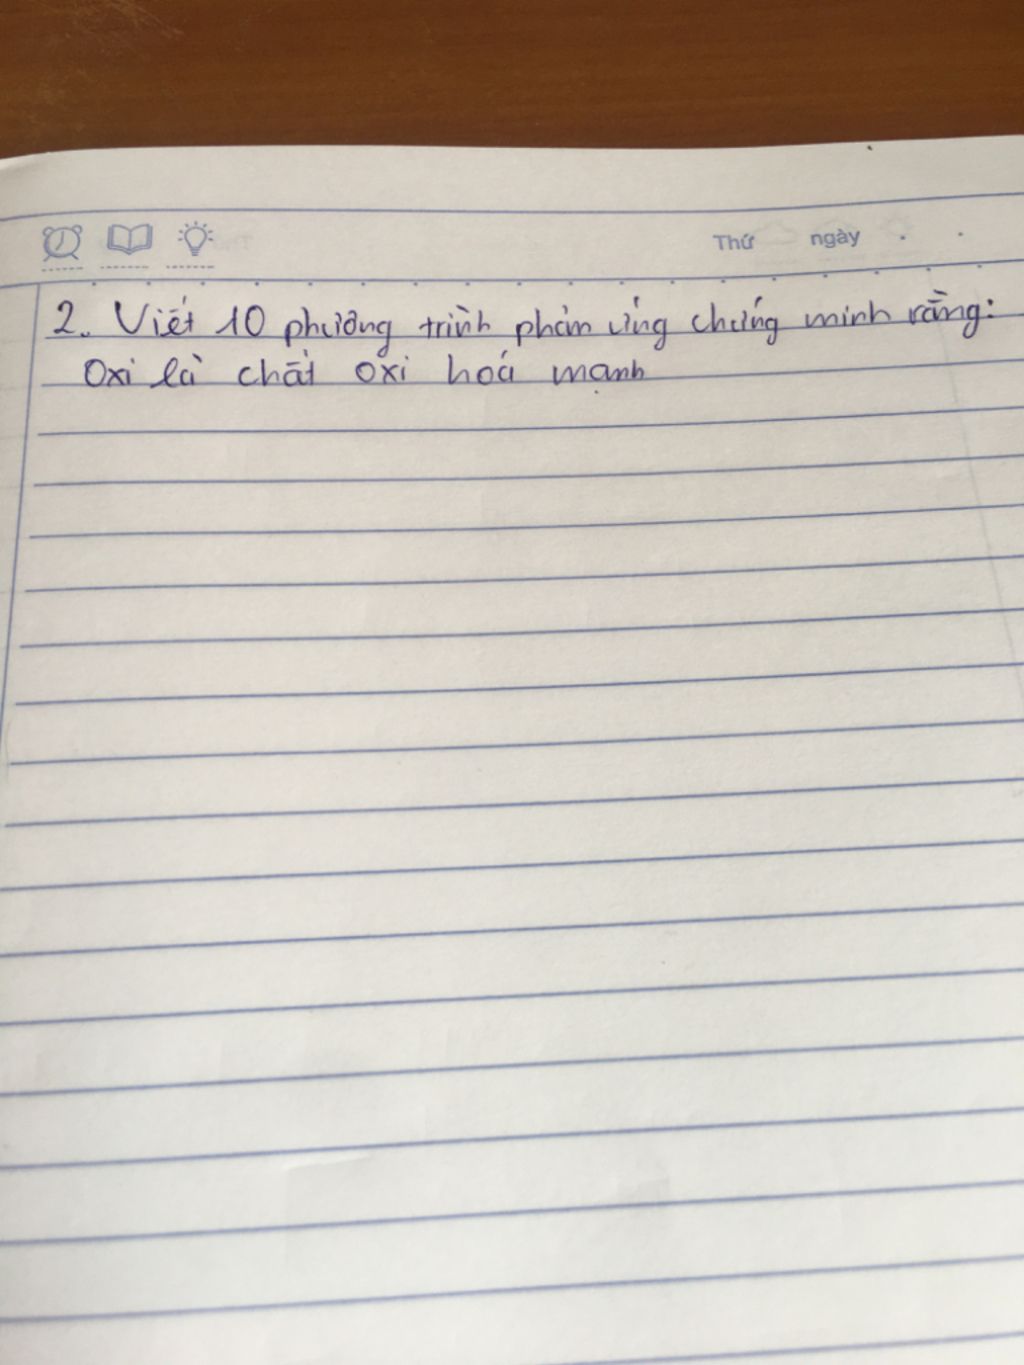 Thứ ngày . .
2. Viết 10 phương trình phản ứng chứng minh rằng:
Oxi là chất oxi hoá mạnh